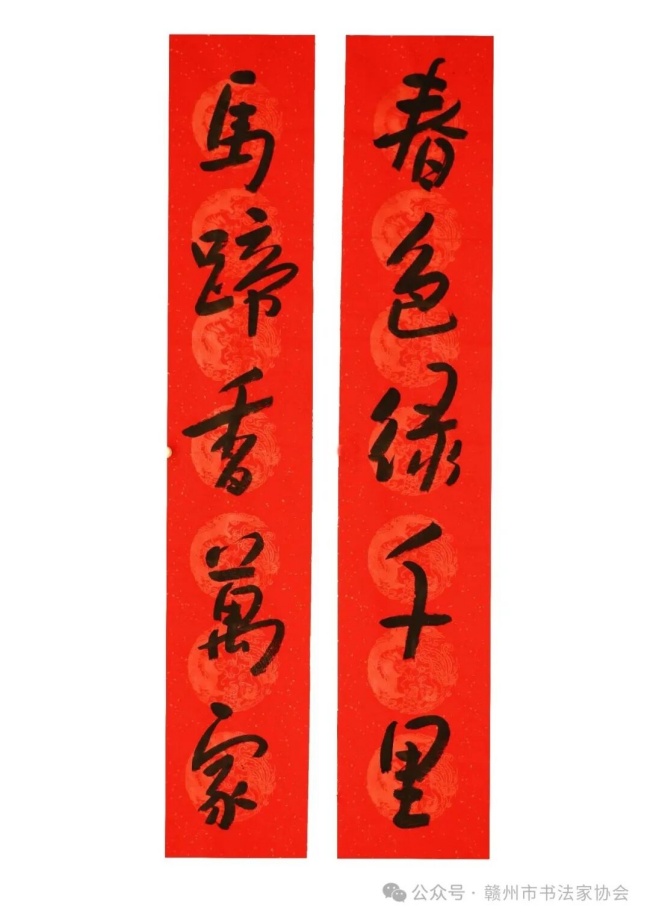 春色绿千里
馬蹄香萬家
公众号 · 赣州市书法家协会